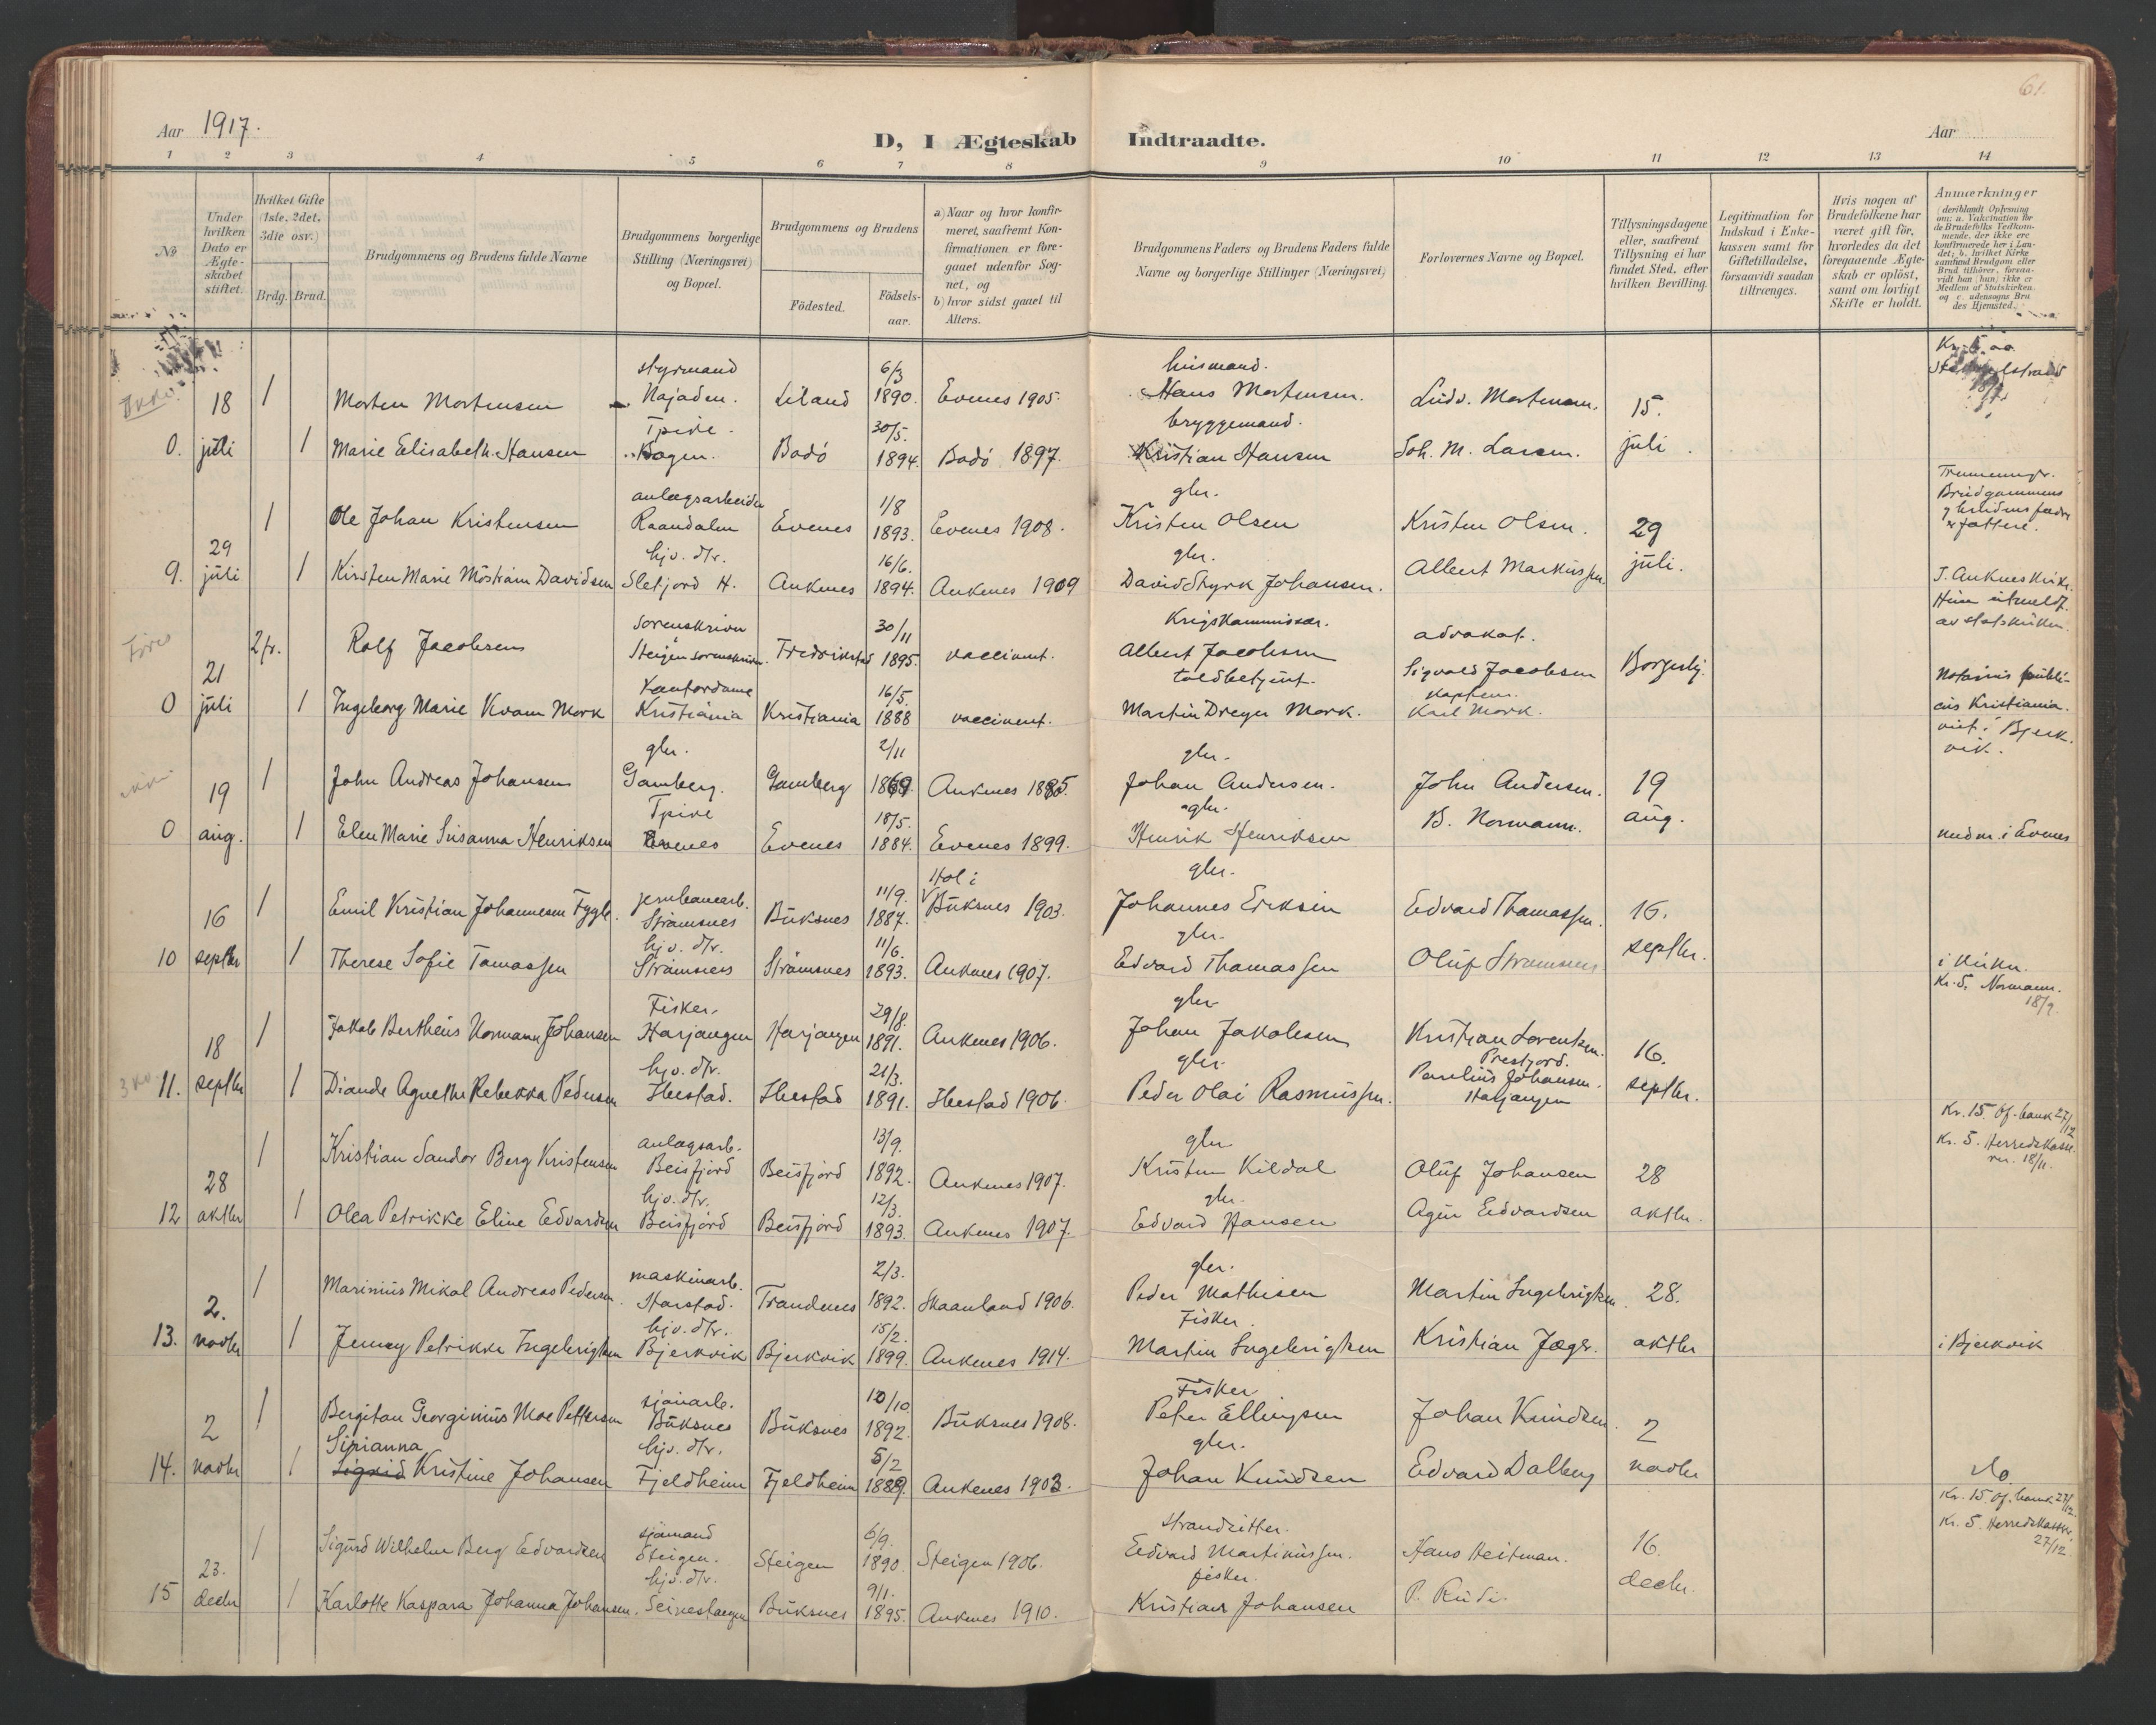 61.
Aar 1917.
D, I Ægteskab Indtraadte.
Aar
1 2 3 4 5 6 7 8 9 10 11 12 13 14
No
Under hvilken Dato er Ægte-skabet stiftet.
Hvilket Gifte (1ste, 2det, 3die osv.)
Brdg. Brud.
Brudgommens og Brudens fulde Navne
Brudgommens borgerlige Stilling (Næringsvei) og Bopæl.
Brudgommens og Brudens
Födested.
Födsels-aar.
a) Naar og hvor konfir-meret, saafremt Kon-firmationen er fore-gaaet udenfor Sog-net, og
b) hvor sidst gaaet til Alters.
Brudgommens Faders og Brudens Faders fulde Navne og borgerlige Stillinger (Næringsvei)
Forlovernes Navne og Bopæl.
Tillysningsdagene eller, saafremt Tillysning ei har fundet Sted, efter hvilken Bevilling.
Legitimation for Indskud i Enke-kassen samt for Giftetilladelse, forsaavidt saadan tiltrænges.
Hvis nogen af Brudefolkene har været gift för, hvorledes da det foregaaende Ægte-skab er oplöst, samt om lovligt Skifte er holdt.
Anmærkninger (deriblandt Oplysning om: a. Vakcination for de Brudefolks Vedkom-mende, der ikke ere konfirmerede her i Lan-det; b. hvilket Kirke samfund Brudgom eller Brud tilhörer, forsaa-vidt han (hun) ikke er Medlem af Statskirken. og c. udensogns Bru des Hjemsted.)
styrmand 6/3 husmand.
18 1 Morten Mortensen Najaden. Liland 1890. Evenes 1905. Hans Mortensen. Ludv. Mortensen. 15.
Tpike. 30/5. bryggemand.
0. juli 1 Marie Elisabeth Hansen Bogen. Bodö 1894. Bodö 1897. Kristian Hansen Joh. M. Larsen. juli
anlægsarbeider 1/8 gbr. Brudgommens
1 Ole Johan Kristensen Raandalen Evenes 1893. Evenes 1908. Kristen Olsen Kristen Olsen. 29
29 hjv. dtr. 16/6. gbr.
9. juli 1 Kirsten Marie Möström Davidsen Sletjord H. Ankenes 1894. Ankenes 1909 David Styrk Johansen. Albert Markussen juli.
I. Ankneskirke.
Hun utmeldt
av statskirken.
sorenskriver 30/11 Krigskommissær. advokat.
21 2/r. Rolf Jacobsen Steigen sorenskriver. Fredrikstad 1895. vaccinert. Albert Jacobsen Sigvald Jacobsen Borgerlig.
kontordame 16/5 toldbetjent. kaptein.
0 juli 1 Ingeborg Marie Kvam Mork Kristiania Kristiania 1888 vaccinert. Martin Dreyer Mork. Karl Mork.
Notarius publi-
cus Kristiania.
viet i Bjerk-
vik.
gbr. 2/11 gbr.
19 1 John Andreas Johansen Gamberg. Gamberg 1869 Ankenes 1885. Johan Andersen. John Andersen. 19
Tpike 18/5. gbr.
0 aug. 1 Elen Marie Susanna Henriksen Evenes Evenes 1884. Evenes 1899. Henrik Henriksen B. Normann. aug.
Hol i gbr.
16 1 Emil Kristian Johannesen Fygle. jernbanearb. Strömsnes Buksnes 11/9. 1887. Buksnes 1903. Johannes Eriksen Edvard Thomassen. 16.
hjv. dtr. 11/6. gbr.
10 septbr 1 Therese Sofie Tomassen Strömsnes Strömsnes 1893. Ankenes 1907. Edvard Thomassen Oluf Strömsnes septbr. i kirken.
Kr. 5. Normann.
18/9.
Fisker. 29/8. gbr
18 1 Jakob Bertheus Normann Johansen Harjangen Harjangen 1891. Ankenes 1906. Johan Jakobsen Kristian Lorentsen. Presjord. 16.
hjv. dtr. 21/3. gbr.
11. septbr 1 Diande Agnethe Rebekka Pedersen Ibestad. Ibestad 1891. Ibestad 1906. Peder Olai Rasmussen. Paulius Johansen. Harjangen septbr.
Kr. 15. Of. bank 27/12
Kr. 5. Herredskasse-
rer. 18/11.
anlægsarb. 13/9. gbr
28 1 Kristian Sandor Berg Kristensen Beisfjord Beisfjord 1892. Ankenes 1907. Kristen Kildal Oluf Johansen 28
hjv. dtr. 12/3. gbr.
12 oktbr 1 Olea Petrikke Eline Edvardsen Beisfjord Beisfjord 1893. Ankenes 1907. Edvard Hansen Agin Edvardsen oktbr.
maskinarb. 2/3. gbr.
2. 1 Marinius Mikal Andreas Pedersen. Harstad. Trondenes 1892. Skaanland 1906. Peder Mathisen Martin Ingebrigtsen. 28.
hjv. dtr. 15/2. Fisker.
13. novbr 1 Jenny Petrikke Ingebrigtsen Bjerkvik Bjerkvik 1899. Ankenes 1914. Martin Ingebrigtsen Kristian Jæger. oktbr i Bjerkvik
sjöuarb. 10/10 Fisker
2 1 Bergiton Georginius Moe Pettersen Buksnes Buksnes 1892. Buksnes 1908. Peter Ellingsen Johan Knudsen 2
Sirianna hjv. dtr. 5/2 gbr.
14. novbr 1 Sigrid Kristine Johansen Fjeldheim Fjeldheim 1889. Ankenes 1903. Johan Knudsen Edvard Dalberg novbr do.
Kr. 15. Of. bank 27/12.
Kr. 5. Herredskasser.
27/12.
sjömand 6/9. strandsitter.
23. 1 Sigurd Wilhelm Berg Edvardsen Steigen. Steigen 1890 Steigen 1906. Edvard Martinussen. Hans Heitman. 16.
hjv. dtr. 9/1. fisker.
15 decbr 1 Karlotte Kaspara Johanna Johansen. Seinestangen Buksnes 1895. Ankenes 1910. Kristian Johansen P. Rudi. decbr.